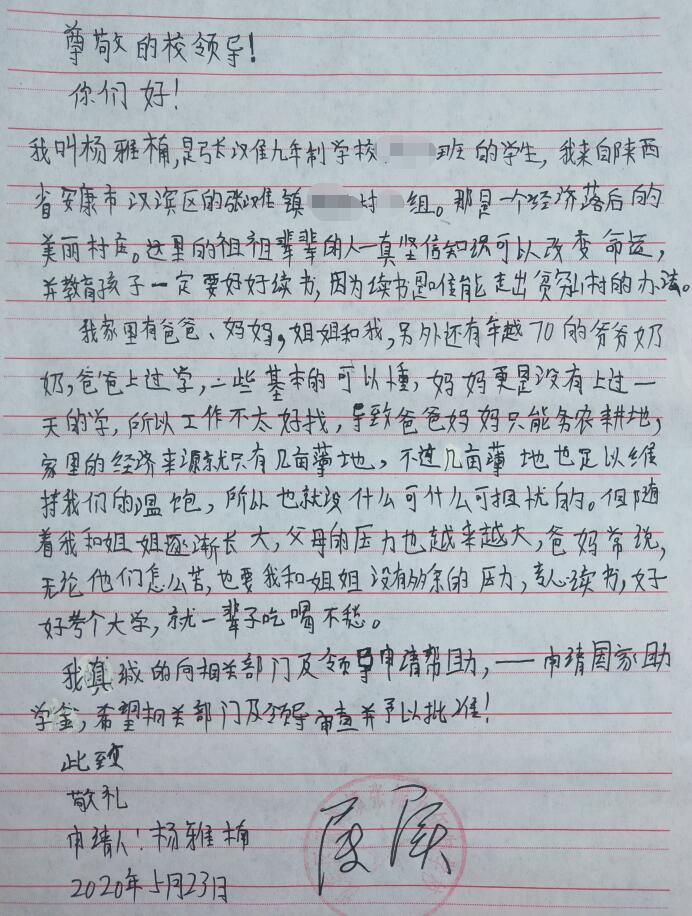 尊敬的校领导!
你们好!
我叫杨雅楠,是张滩维九年制学校 班的学生,我来自陕西
省安康市汉滨区的张滩镇 村 组。那是一个经济落后的
美丽村庄。这里的祖祖辈辈的人一直坚信知识可以改变命运,
并教育孩子一定要好好读书,因为读书是唯能走出贫穷山村的办法。
我家里有爸爸、妈妈,姐姐和我,另外还有年越70的爷爷奶
奶,爸爸上过学,一些基本的可以懂,妈妈更是没有上过一
天的学,所以工作不太好找,导致爸爸妈妈只能务农耕地,
家里的经济来源就只有几亩薄地,不过几亩薄地也足以维
持我们的温饱,所以也就没什么可什么可担忧的。但随
着我和姐姐逐渐长大,父母的压力也越来越大,爸妈常说,
无论他们怎么苦,也要我和姐姐没有多余的压力,专心读书,好
好考个大学,就一辈子吃喝不愁。
我真诚的向相关部门及领导申请帮助,——申请国家助
学金,希望相关部门及领导审查并予以批准!
此致
敬礼
申请人:杨雅楠
2020年5月23日